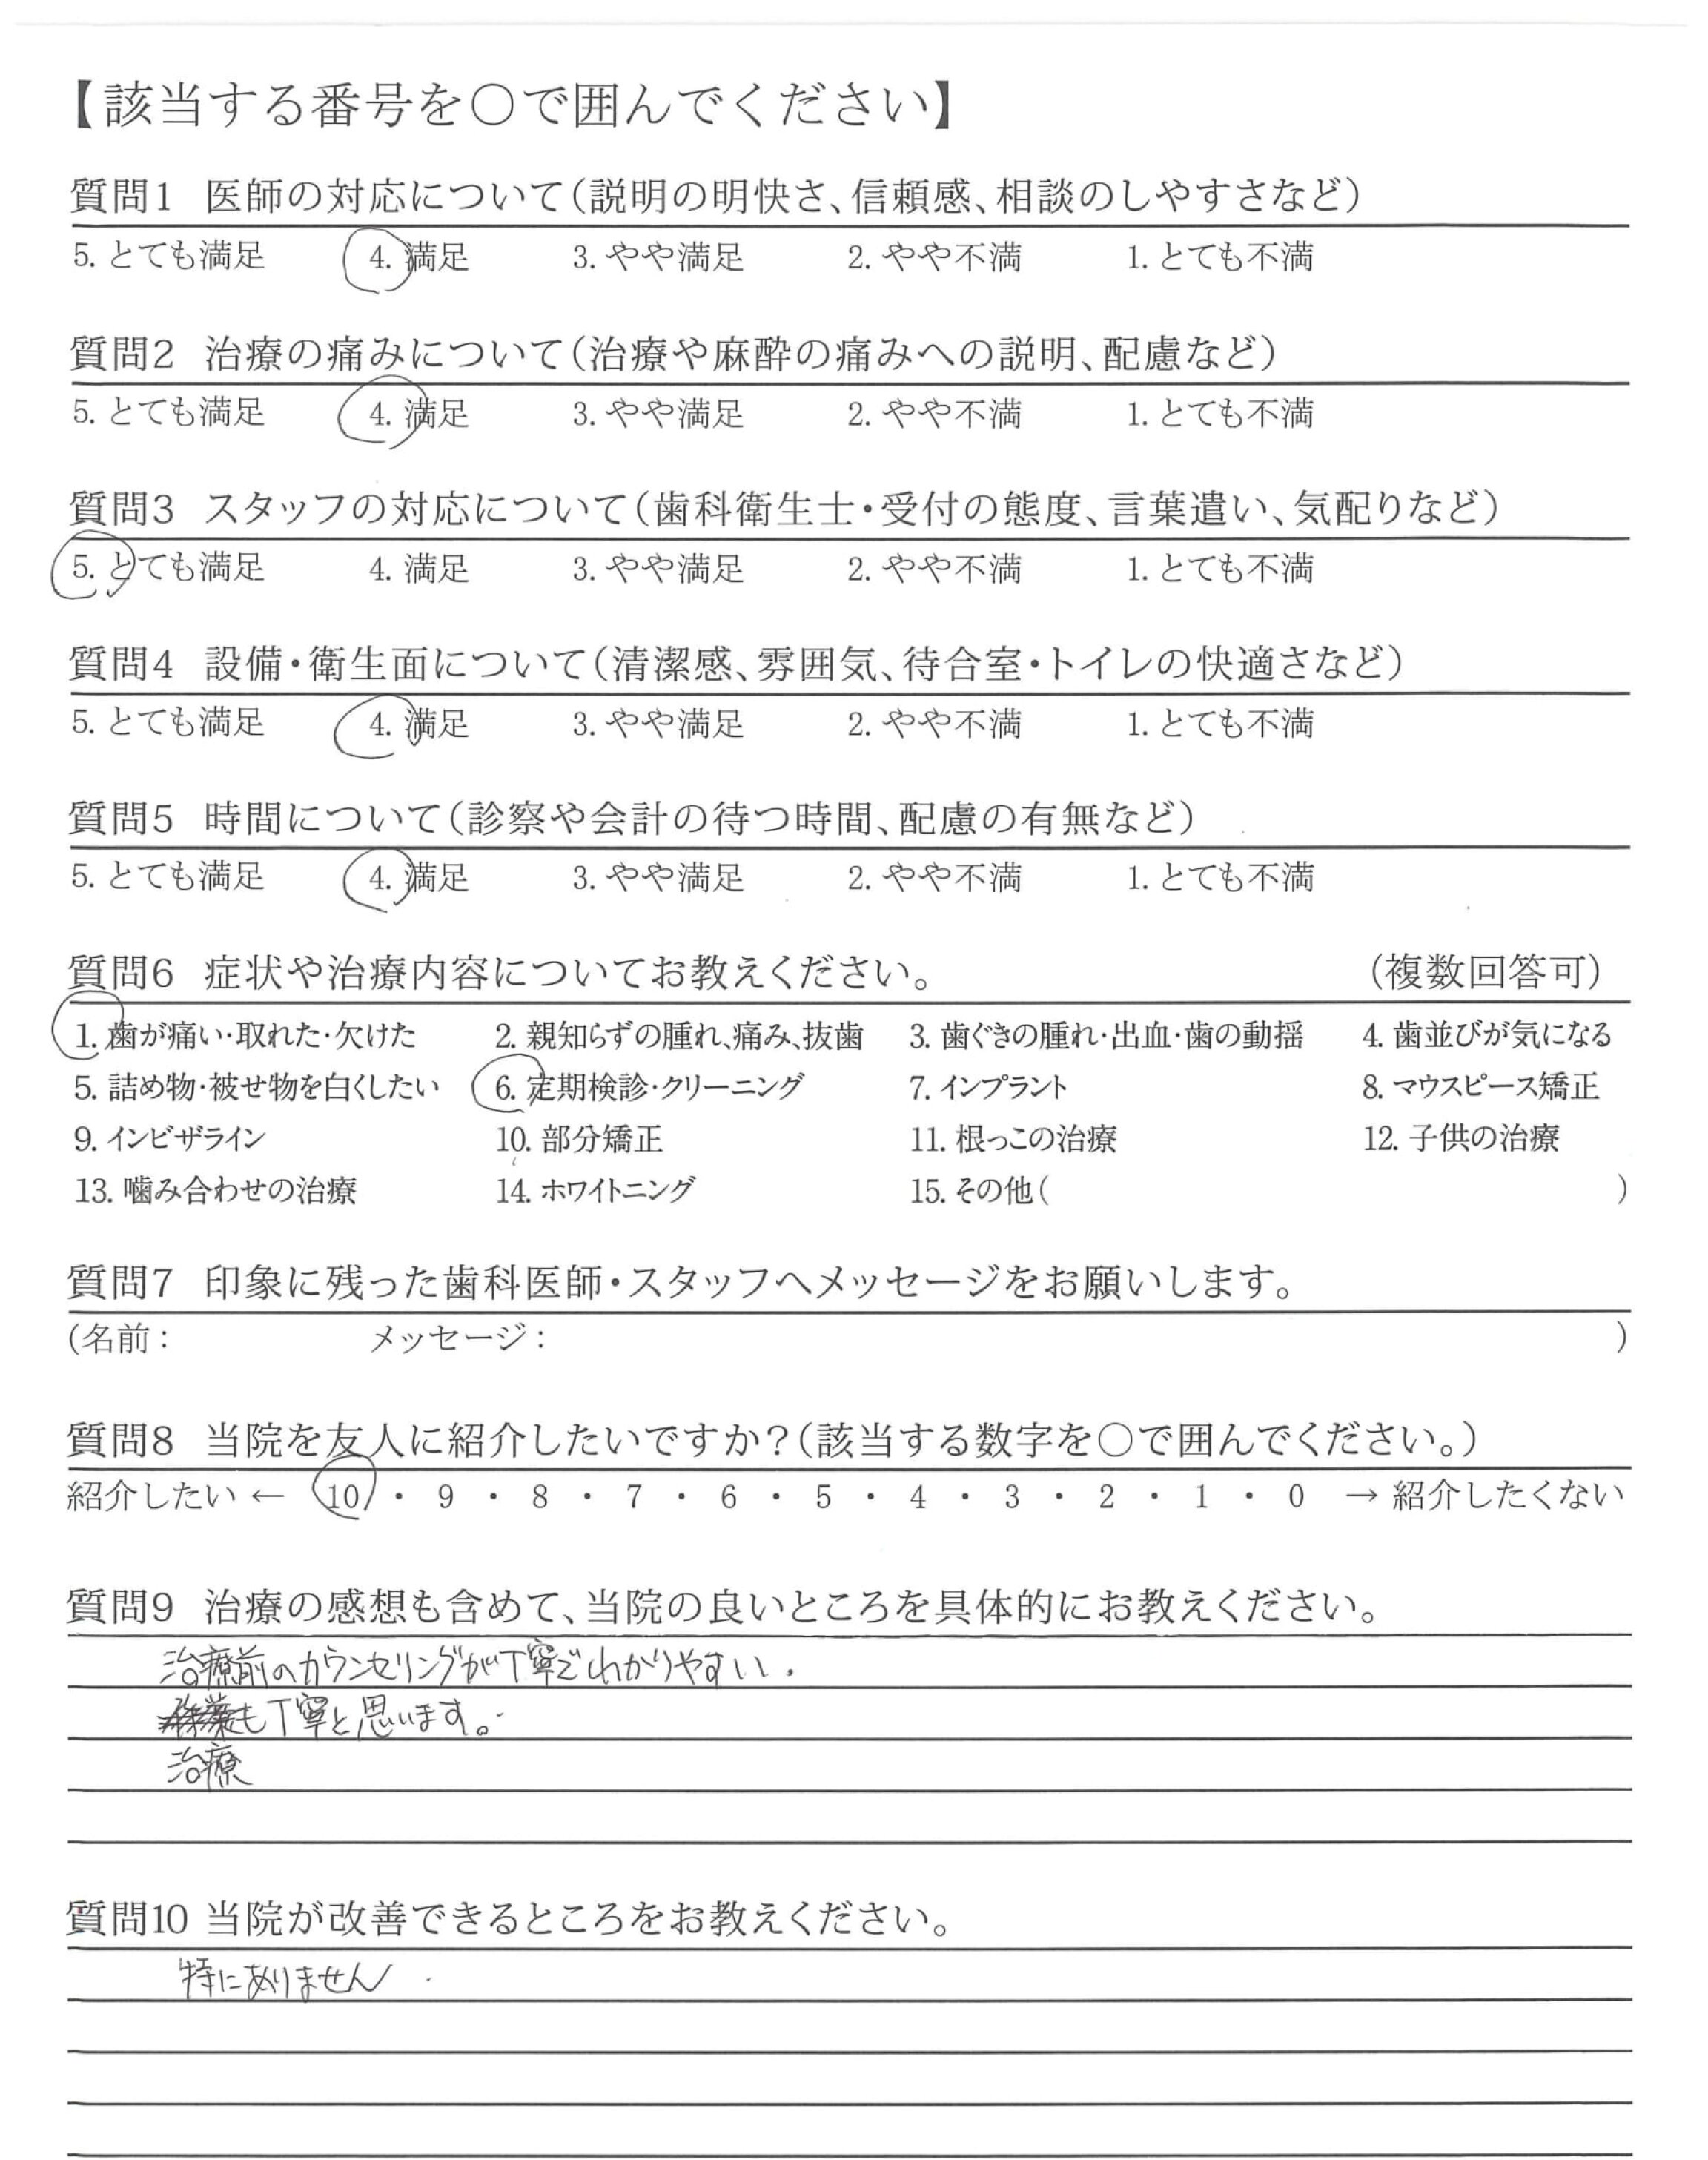 【該当する番号を〇で囲んでください】
質問1 医師の対応について(説明の明快さ、信頼感、相談のしやすさなど)
5. とても満足 4. 満足 3. やや満足 2. やや不満 1. とても不満
質問2 治療の痛みについて(治療や麻酔の痛みへの説明、配慮など)
5. とても満足 4. 満足 3. やや満足 2. やや不満 1. とても不満
質問3 スタッフの対応について(歯科衛生士・受付の態度、言葉遣い、気配りなど)
5. とても満足 4. 満足 3. やや満足 2. やや不満 1. とても不満
質問4 設備・衛生面について(清潔感、雰囲気、待合室・トイレの快適さなど)
5. とても満足 4. 満足 3. やや満足 2. やや不満 1. とても不満
質問5 時間について(診察や会計の待つ時間、配慮の有無など)
5. とても満足 4. 満足 3. やや満足 2. やや不満 1. とても不満
質問6 症状や治療内容についてお教えください。 (複数回答可)
1. 歯が痛い・取れた・欠けた 2. 親知らずの腫れ、痛み、抜歯 3. 歯ぐきの腫れ・出血・歯の動揺 4. 歯並びが気になる
5. 詰め物・被せ物を白くしたい 6. 定期検診・クリーニング 7. インプラント 8. マウスピース矯正
9. インビザライン 10. 部分矯正 11. 根っこの治療 12. 子供の治療
13. 噛み合わせの治療 14. ホワイトニング 15. その他( )
質問7 印象に残った歯科医師・スタッフへメッセージをお願いします。
(名前: メッセージ: )
質問8 当院を友人に紹介したいですか?(該当する数字を〇で囲んでください。)
紹介したい ← 10 ・ 9 ・ 8 ・ 7 ・ 6 ・ 5 ・ 4 ・ 3 ・ 2 ・ 1 ・ 0 → 紹介したくない
質問9 治療の感想も含めて、当院の良いところを具体的にお教えください。
治療前のカウンセリングが丁寧でわかりやすい.
も丁寧と思います。
治療
質問10 当院が改善できるところをお教えください。
特にありません.